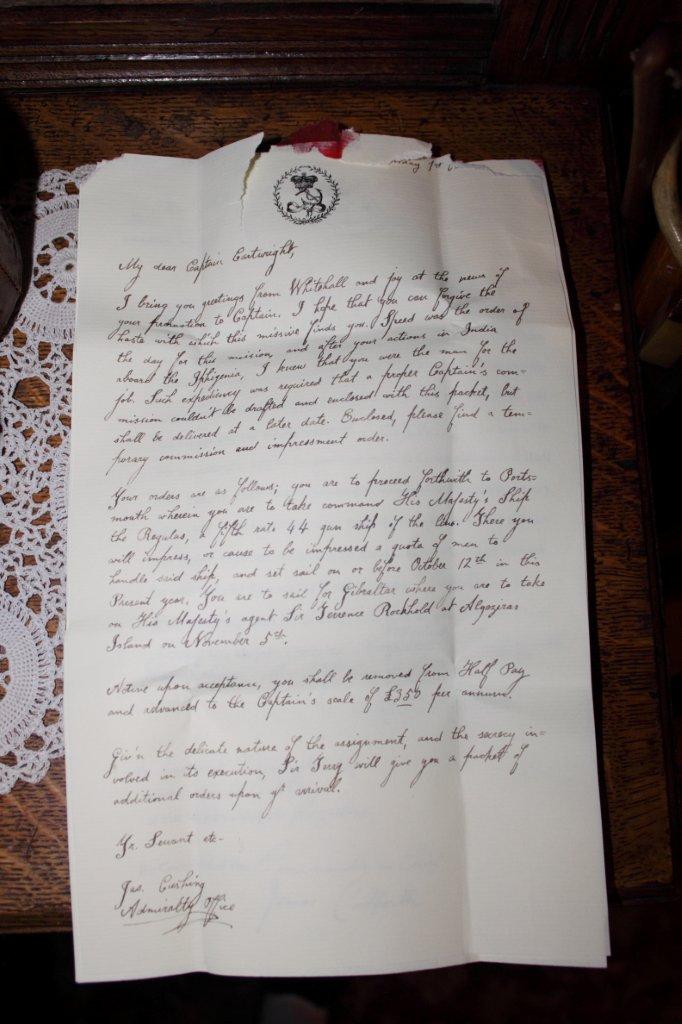 My dear Captain Cartwright,
I bring you greetings from Whitehall and joy at the news of
your promotion to Captain. I hope that you can forgive the
haste with which this missive finds you. Speed was the order of
the day for this mission, and after your actions in India
aboard the Iphigenia, I knew that you were the man for the
job. Such expediency was required that a proper Captain's com-
mission couldn't be drafted and enclosed with this packet, but
shall be delivered at a later date. Enclosed, please find a tem-
porary commission and impressment order.
Your orders are as follows; you are to proceed forthwith to Ports-
mouth wherein you are to take command His Majesty's Ship
the Regulus, a fifth rate 44 gun ship of the line. There you
will impress, or cause to be impressed a quota of men to
handle said ship, and set sail on or before October 12th in this
Present year. You are to sail for Gibraltar where you are to take
on His Majesty's agent Sir Terrence Rockhold at Algeziras
Island on November 5th.
Notice upon acceptance, you shall be removed from Half Pay
and advanced to the Captain's scale of £350 per annum.
Giv'n the delicate nature of the assignment, and the secrecy in-
volved in its execution, Sir Terry will give you a packet of
additional orders upon yr arrival.
Yr. Servant etc-
Jas. Cushing
Admiralty Office